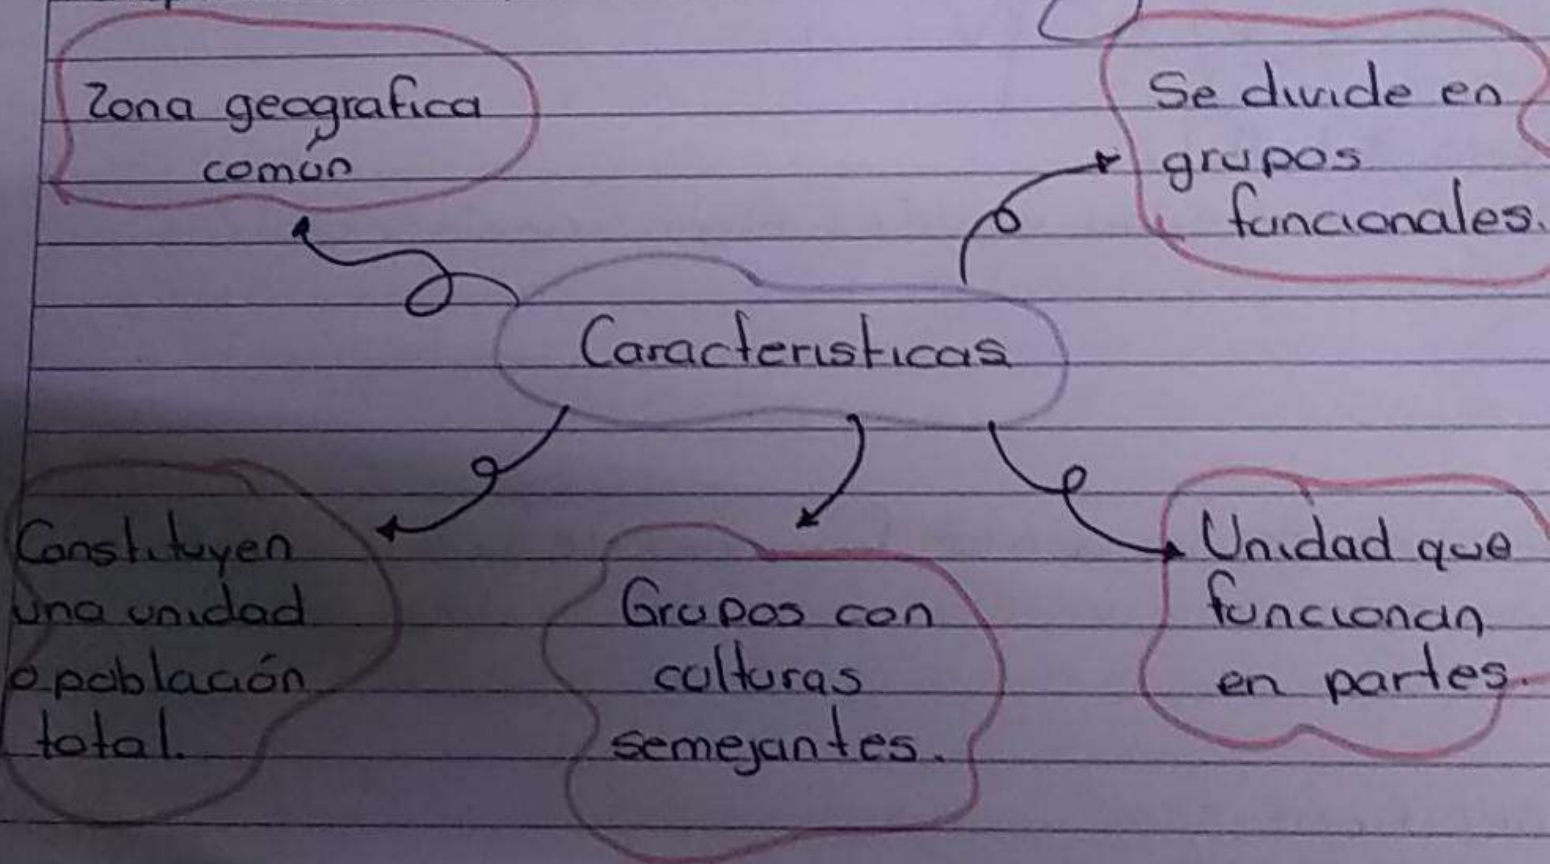 Zona geografica
común
Se divide en
grupos
funcionales.
Caracteristicas
Constituyen
una unidad
o población
total.
Grupos con
culturas
semejantes.
Unidad que
funcionan
en partes.